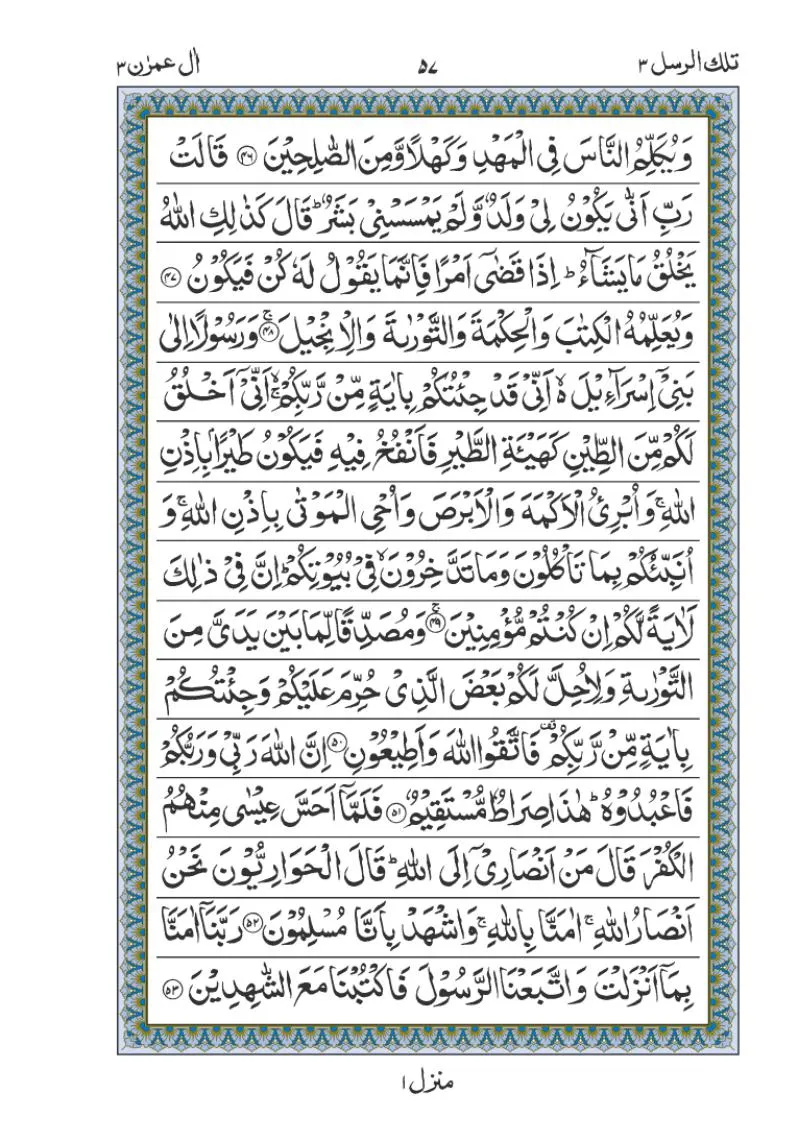 تلك الرسل ٣
٥٧
اٰل عمرٰن ٣
وَيُكَلِّمُ النَّاسَ فِى الْمَهْدِ وَكَهْلًا وَّمِنَ الصّٰلِحِيْنَ ﴿۴۶﴾ قَالَتْ
رَبِّ اَنّٰى يَكُوْنُ لِىْ وَلَدٌ وَّلَمْ يَمْسَسْنِىْ بَشَرٌ ؕ قَالَ كَذٰلِكِ اللّٰهُ
يَخْلُقُ مَا يَشَآءُ ؕ اِذَا قَضٰٓى اَمْرًا فَاِنَّمَا يَقُوْلُ لَهٗ كُنْ فَيَكُوْنُ ﴿۴۷﴾
وَيُعَلِّمُهُ الْكِتٰبَ وَالْحِكْمَةَ وَالتَّوْرٰىةَ وَالْاِنْجِيْلَ ۚ﴿۴۸﴾ وَرَسُوْلًا اِلٰى
بَنِىْۤ اِسْرَآءِيْلَ ۙ اَنِّىْ قَدْ جِئْتُكُمْ بِاٰيَةٍ مِّنْ رَّبِّكُمْ ۙۚ اَنِّىْۤ اَخْلُقُ
لَكُمْ مِّنَ الطِّيْنِ كَهَيْـَٔةِ الطَّيْرِ فَاَنْفُخُ فِيْهِ فَيَكُوْنُ طَيْرًا بِاِذْنِ
اللّٰهِ ۚ وَاُبْرِئُ الْاَكْمَهَ وَالْاَبْرَصَ وَاُحْىِ الْمَوْتٰى بِاِذْنِ اللّٰهِ ۚ وَ
اُنَبِّئُكُمْ بِمَا تَاْكُلُوْنَ وَمَا تَدَّخِرُوْنَ ۙ فِىْ بُيُوْتِكُمْ ؕ اِنَّ فِىْ ذٰلِكَ
لَاٰيَةً لَّكُمْ اِنْ كُنْتُمْ مُّؤْمِنِيْنَ ۚ﴿۴۹﴾ وَمُصَدِّقًا لِّمَا بَيْنَ يَدَىَّ مِنَ
التَّوْرٰىةِ وَلِاُحِلَّ لَكُمْ بَعْضَ الَّذِىْ حُرِّمَ عَلَيْكُمْ وَجِئْتُكُمْ
بِاٰيَةٍ مِّنْ رَّبِّكُمْ ۟ فَاتَّقُوا اللّٰهَ وَاَطِيْعُوْنِ ﴿۵۰﴾ اِنَّ اللّٰهَ رَبِّىْ وَرَبُّكُمْ
فَاعْبُدُوْهُ ؕ هٰذَا صِرَاطٌ مُّسْتَقِيْمٌ ﴿۵۱﴾ فَلَمَّاۤ اَحَسَّ عِيْسٰى مِنْهُمُ
الْكُفْرَ قَالَ مَنْ اَنْصَارِىْۤ اِلَى اللّٰهِ ؕ قَالَ الْحَوَارِيُّوْنَ نَحْنُ
اَنْصَارُ اللّٰهِ ۚ اٰمَنَّا بِاللّٰهِ ۚ وَاشْهَدْ بِاَنَّا مُسْلِمُوْنَ ﴿۵۲﴾ رَبَّنَاۤ اٰمَنَّا
بِمَاۤ اَنْزَلْتَ وَاتَّبَعْنَا الرَّسُوْلَ فَاكْتُبْنَا مَعَ الشّٰهِدِيْنَ ﴿۵۳﴾
منزل ١